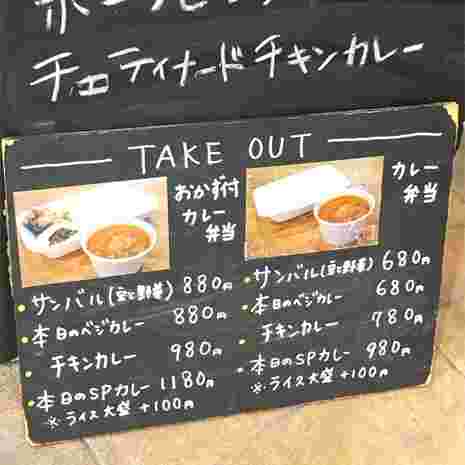 チェティナードチキンカレー
TAKE OUT
おかず付
カレー
弁当
サンバル(豆と野菜) 880円
本日のベジカレー 880円
チキンカレー 980円
本日のSPカレー 1180円
※ライス大盛 +100円
カレー
弁当
サンバル(豆と野菜) 680円
本日のベジカレー 680円
チキンカレー 780円
本日のSPカレー 980円
※ライス大盛 +100円